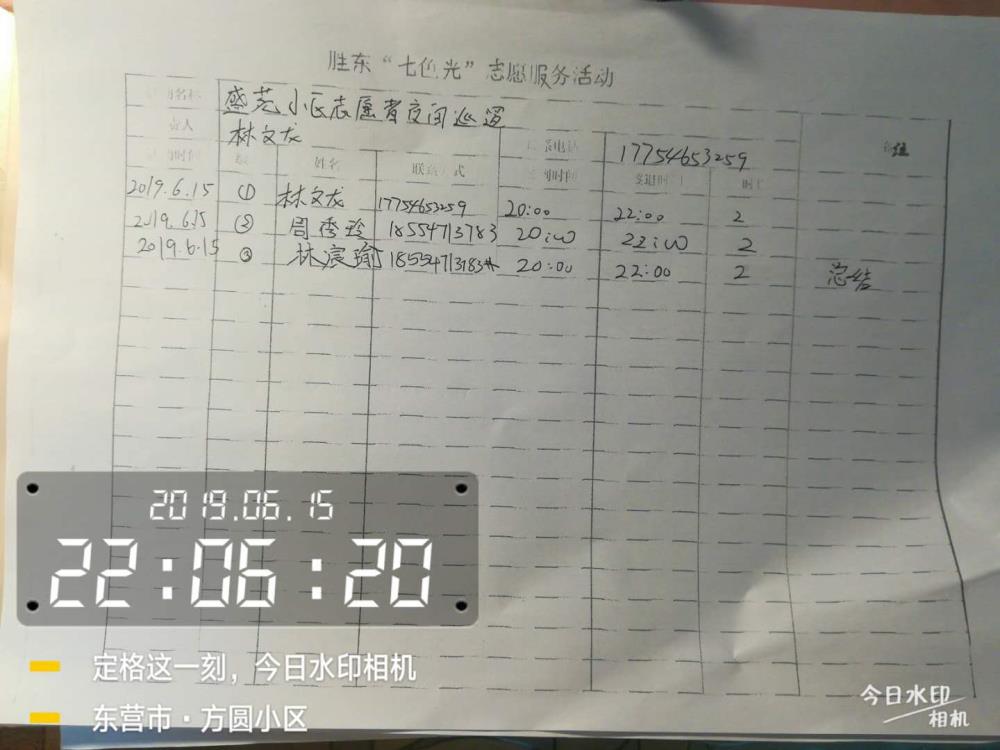 胜东“七色光”志愿服务活动
名称 盛苑小区志愿者夜间巡逻
责人 林文龙 电话 17754653259
时间 姓名 联 式 时间 时
2019.6.15 ① 林文龙 17754653259 20:00 22:00 2
2019.6.15 ② 周秀玲 18554713783 20:00 22:00 2
2019.6.15 ③ 林宸瑜 18554713783 20:00 22:00 2 总结
2019.06.15
22:06:20
定格这一刻，今日水印相机
东营市·方圆小区
今日水印
相机